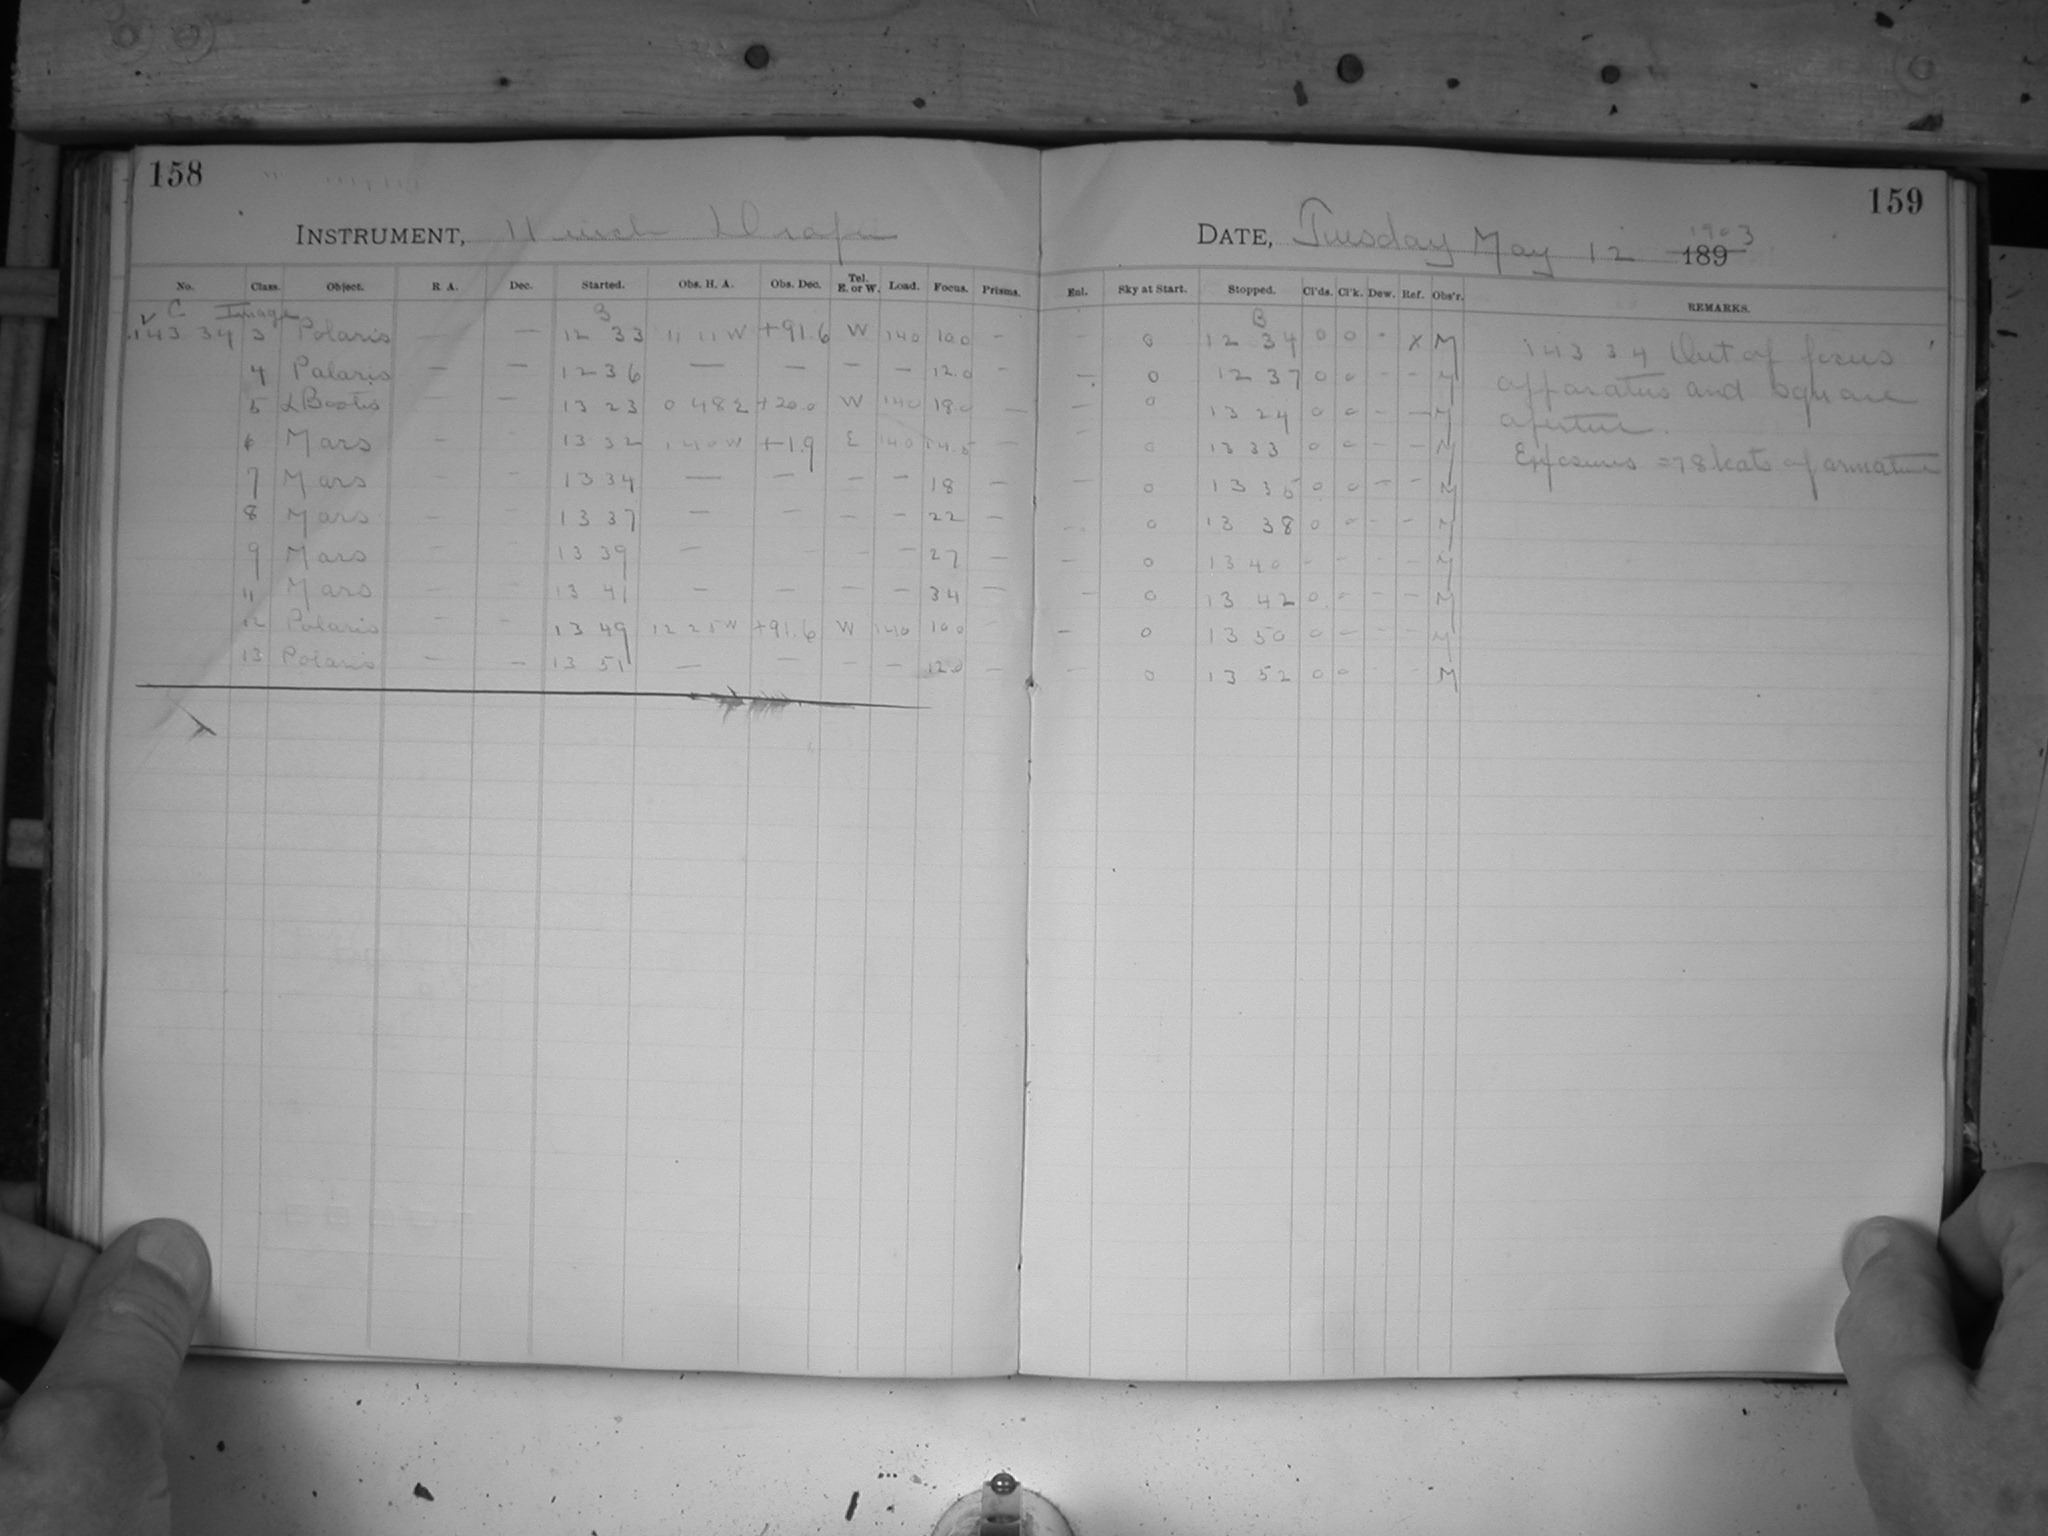 158
INSTRUMENT, 11 inch Draper
No. Class. Object. R. A. Dec. Started. Obs. H. A. Obs. Dec. Tel. E. or W. Load. Focus. Prisms.
C Image B
14334 3 Polaris — — 12 33 11 11 W +91.6 W 140 10.0 –
4 Polaris — — 12 36 — — — — 12.0 –
5 α Bootis — — 13 23 0 48 E +20.0 W 140 18.0 —
6 Mars – – 13 32 1 40 W +1.9 E 140 14.5 —
7 Mars – – 13 34 — — – – 18 —
8 Mars – – 13 37 — — – – 22 —
9 Mars – – 13 39 — – – – 27 —
11 Mars – – 13 41 – – – – 34 —
12 Polaris – – 13 49 12 25 W +91.6 W 140 10.0
13 Polaris — – 13 51 — — – – 12.0 –
159
DATE, Tuesday May 12 189 1903
Enl. Sky at Start. Stopped. Cl'ds. Cl'k. Dew. Ref. Obs'r. REMARKS.
B
– 0 12 34 0 0 - X M
– 0 12 37 0 0 - - M
– 0 13 24 0 0 - — M
0 13 33 0 0 - - M
– 0 13 35 0 0 - - M
– 0 13 38 0 - - - M
– 0 13 40 - - - - M
– 0 13 42 0 - - - M
– 0 13 50 0 - - - M
– 0 13 52 0 0 - - M
14334 Out of focus
apparatus and square
aperture.
Exposures = 78 beats of armature